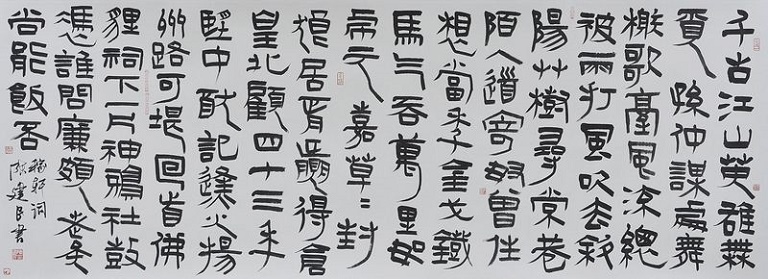 千古江山英雄無
覓孫仲謀處舞
榭歌臺風流總
被雨打風吹去斜
陽艸樹尋常巷
陌人道寄奴曾住
想當年金戈鐵
馬气吞萬里如
虎元嘉草〻封
狼居胥贏得倉
皇北顧四十三年
望中猶記烽火揚
州路可堪回首佛
貍祠下一片神鴉社鼓
憑誰問廉頗老矣
尚能飯否
稼軒詞
建民書